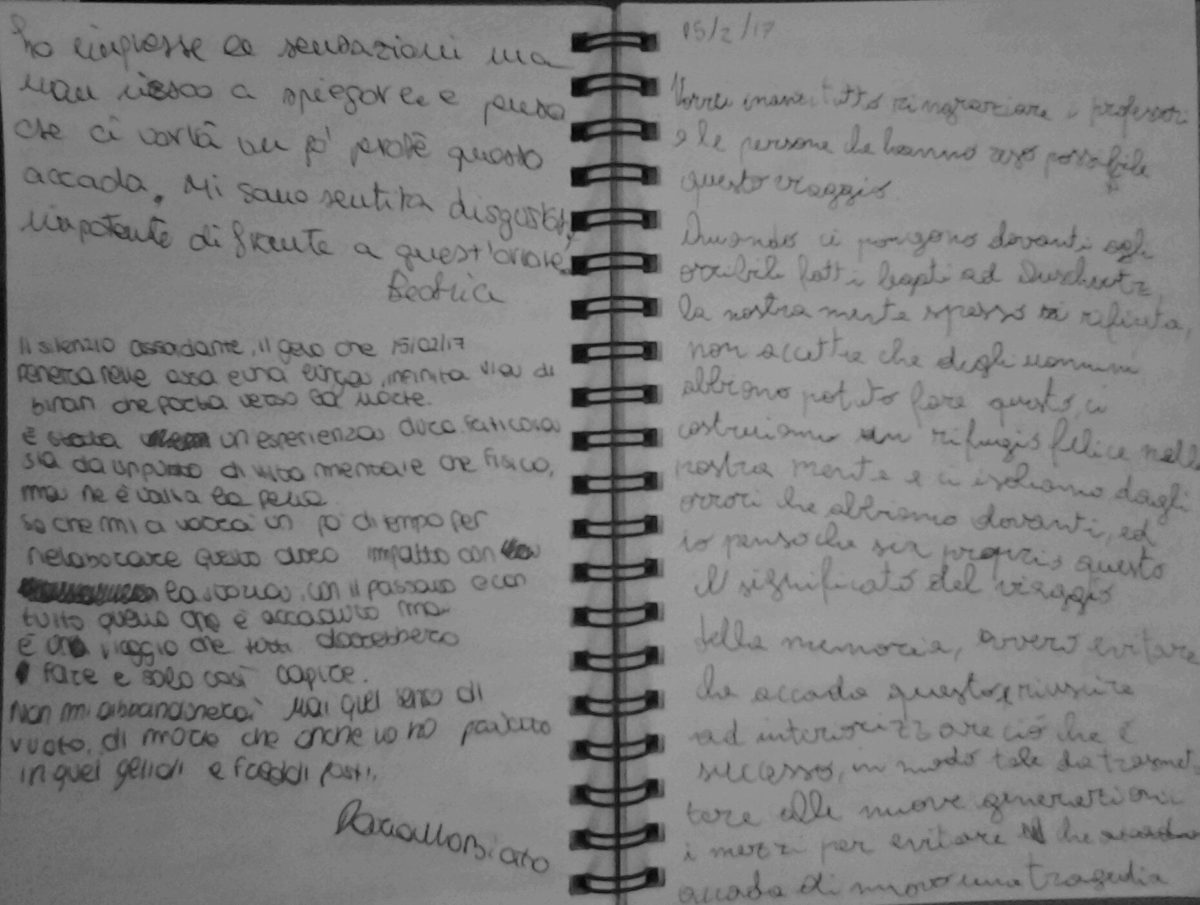 ho impresse le sensazioni ma
non riesco a spiegarle e penso
che ci vorrà un po' perchè questo
accada. Mi sono sentita disgustata,
impotente di fronte a quest'orrore.
Beatrice
Il silenzio assordante, il gelo che 15/02/17
penetra nelle ossa e una lunga, infinita via di
binari che porta verso la morte.
È stata un esperienza dura faticosa
sia da un punto di vista mentale che fisico,
ma ne è valsa la pena.
So che mi ci vorrà un po' di tempo per
rielaborare questo duro impatto con
la storia, con il passato e con
tutto quello che è accaduto ma
è un viaggio che tutti dovrebbero
fare e solo così capire.
Non mi abbandonerà mai quel senso di
vuoto, di morte che anche io ho patito
in quei gelidi e freddi posti.
15/2/17
Vorrei innanzitutto ringraziare i professori
e le persone che hanno reso possibile
questo viaggio.
Quando ci pongono davanti agli
orribili fatti ad Auschwitz
la nostra mente spesso si rifiuta,
non accetta che degli uomini
abbiano potuto fare questo, ci
costruiamo un rifugio felice nella
nostra mente e ci isoliamo dagli
orrori che abbiamo davanti, ed
io penso che sia proprio questo
il significato del viaggio
della memoria, ovvero evitare
che accada questo e riuscire
ad interiorizzare ciò che è
successo, in modo tale da trasmet-
tere alle nuove generazioni
i mezzi per evitare che
accada di nuovo una tragedia